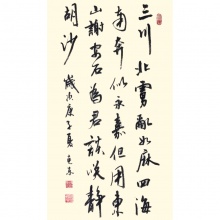 三川北虜亂如麻四海
南奔似永嘉但用東
山謝安石為君談咲靜
胡沙 歲次庚子夏